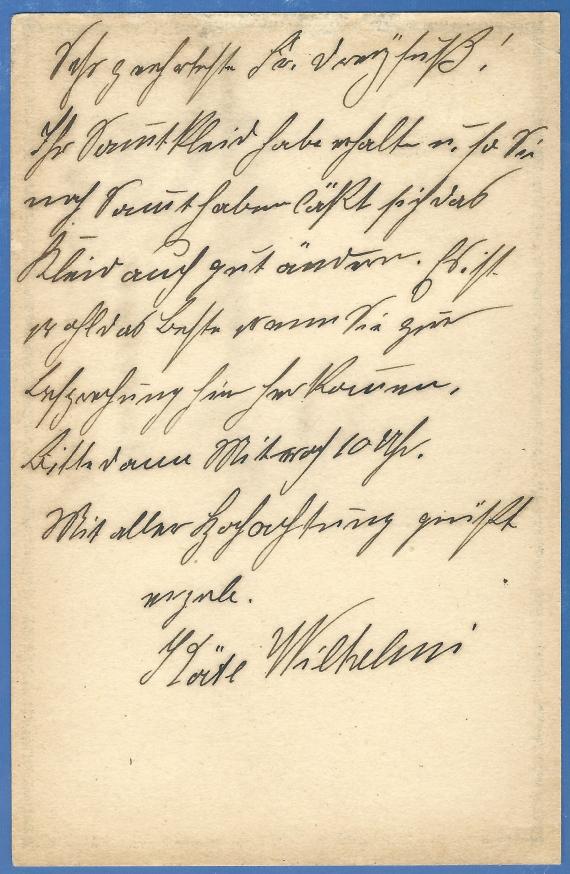 Sehr geehrteste Fr. Dreyfuß!
Ihr Samtkleid habe erhalte u. so Sie
noch Samt haben läßt sich das
Kleid auch gut ändern. Es ist
wohl das Beste wann Sie zur
Besprechung hin her kommen.
Bitte dann Mitwoch 10 Uhr.
Mit aller Hochachtung grüßt
ergeb.
Käte Wilhelmi